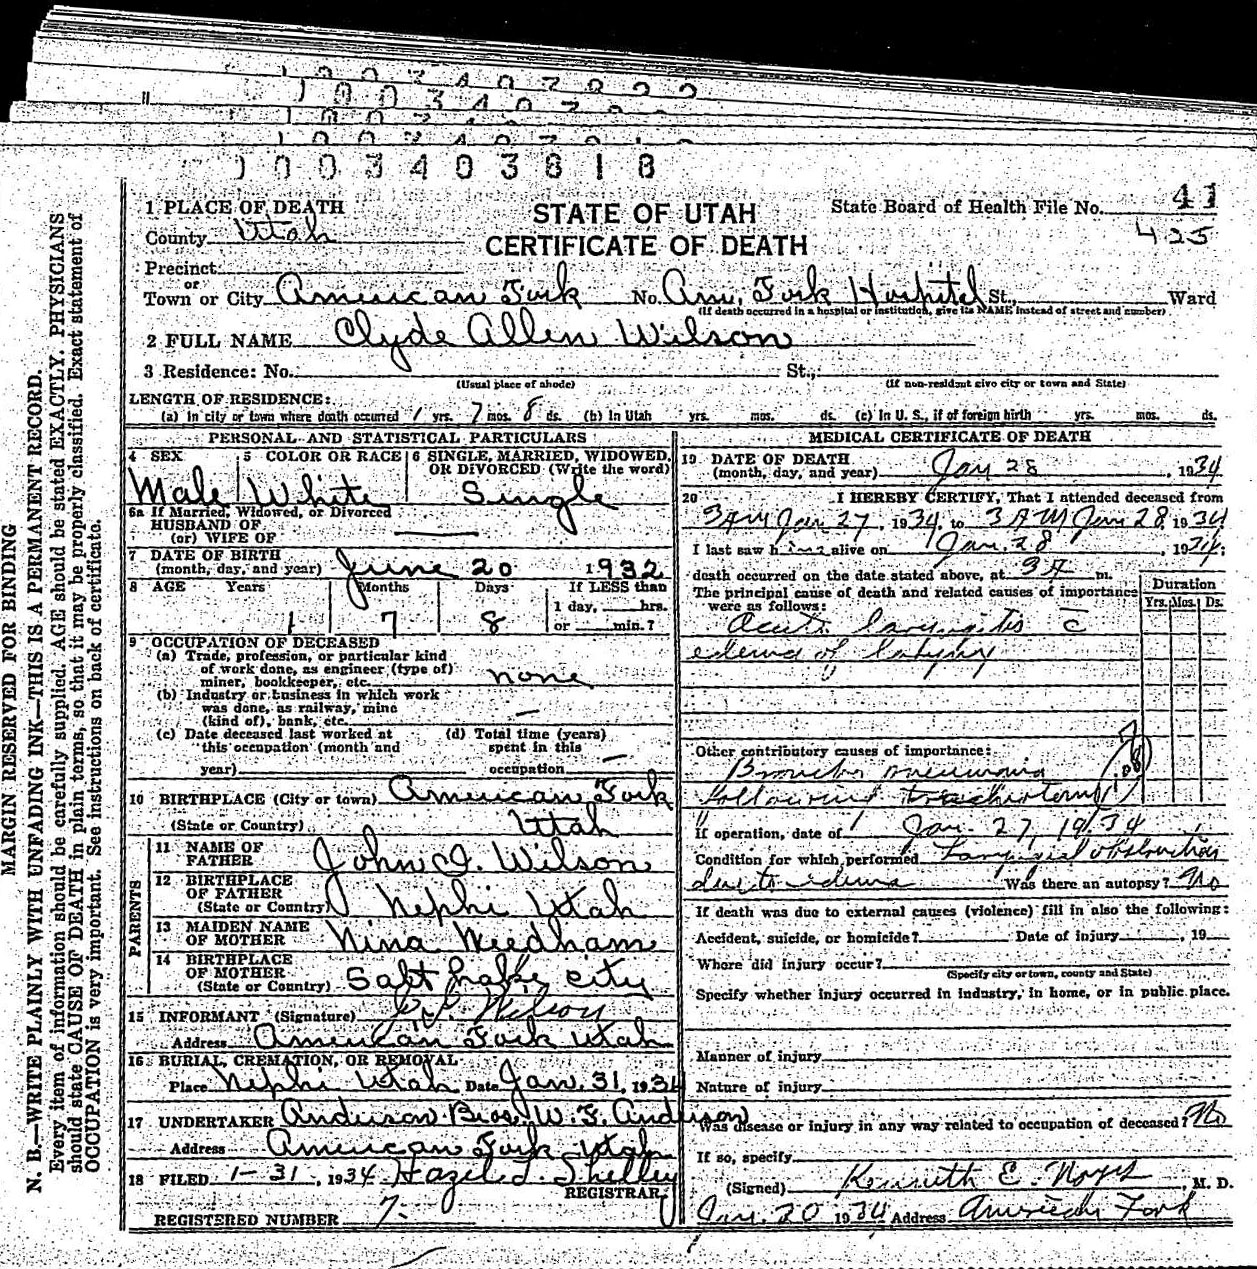 1003403818
STATE OF UTAH
CERTIFICATE OF DEATH
State Board of Health File No. 41
425
1 PLACE OF DEATH
County Utah
Precinct
or
Town or City American Fork No. Am. Fork Hospital St., Ward
(If death occurred in a hospital or institution, give its NAME instead of street and number)
2 FULL NAME Clyde Allen Wilson
3 Residence: No. St.,
(Usual place of abode) (If non-resident give city or town and State)
LENGTH OF RESIDENCE:
(a) In city or town where death occurred 1 yrs. 7 mos. 8 ds. (b) In Utah yrs. mos. ds. (c) In U. S., if of foreign birth yrs. mos. ds.
PERSONAL AND STATISTICAL PARTICULARS
4 SEX 5 COLOR OR RACE 6 SINGLE, MARRIED, WIDOWED,
OR DIVORCED (Write the word)
Male White Single
6a If Married, Widowed, or Divorced
HUSBAND OF
(or) WIFE OF
7 DATE OF BIRTH
(month, day, and year) June 20 1932
8 AGE Years Months Days If LESS than
1 day, hrs.
1 7 8 or min.?
9 OCCUPATION OF DECEASED
(a) Trade, profession, or particular kind
of work done, as engineer (type of)
miner, bookkeeper, etc. none
(b) Industry or business in which work
was done, as railway, mine
(kind of), bank, etc. —
(c) Date deceased last worked at (d) Total time (years)
this occupation (month and spent in this
year) occupation —
10 BIRTHPLACE (City or town) American Fork
(State or Country) Utah
PARENTS
11 NAME OF
FATHER John I. Wilson
12 BIRTHPLACE
OF FATHER
(State or Country) Nephi Utah
13 MAIDEN NAME
OF MOTHER Nina Needham
14 BIRTHPLACE
OF MOTHER
(State or Country) Salt Lake City
15 INFORMANT (Signature) Wilson
Address American Fork Utah
16 BURIAL, CREMATION, OR REMOVAL
Place Nephi Utah Date Jan. 31, 1934
17 UNDERTAKER Anderson Bros. W. F. Anderson
Address American Fork Utah
18 FILED 1-31, 1934 Hazel L. Shelley
REGISTRAR
REGISTERED NUMBER 7
MEDICAL CERTIFICATE OF DEATH
19 DATE OF DEATH
(month, day, and year) Jan 28, 1934
20 I HEREBY CERTIFY, That I attended deceased from
3AM Jan 27, 1934, to 3 AM Jan 28, 1934
I last saw him alive on Jan. 28, 1934;
death occurred on the date stated above, at 3 A m.
The principal cause of death and related causes of importance
were as follows:
Duration
Yrs. Mos. Ds.
Acute laryngitis c̄
edema of larynx
Other contributory causes of importance:
Broncho pneumonia
following tracheotomy
If operation, date of Jan. 27, 1934
Condition for which performed Laryngeal obstruction
due to edema Was there an autopsy? No
If death was due to external causes (violence) fill in also the following:
Accident, suicide, or homicide? Date of injury , 19
Where did injury occur?
(Specify city or town, county and State)
Specify whether injury occurred in industry, in home, or in public place.
Manner of injury
Nature of injury
Was disease or injury in any way related to occupation of deceased? No
If so, specify
(Signed) Kenneth E. Noyes, M. D.
Jan. 20 1934 Address American Fork
MARGIN RESERVED FOR BINDING
N. B.—WRITE PLAINLY WITH UNFADING INK—THIS IS A PERMANENT RECORD.
Every item of information should be carefully supplied. AGE should be stated EXACTLY. PHYSICIANS
should state CAUSE OF DEATH in plain terms, so that it may be properly classified. Exact statement of
OCCUPATION is very important. See instructions on back of certificate.